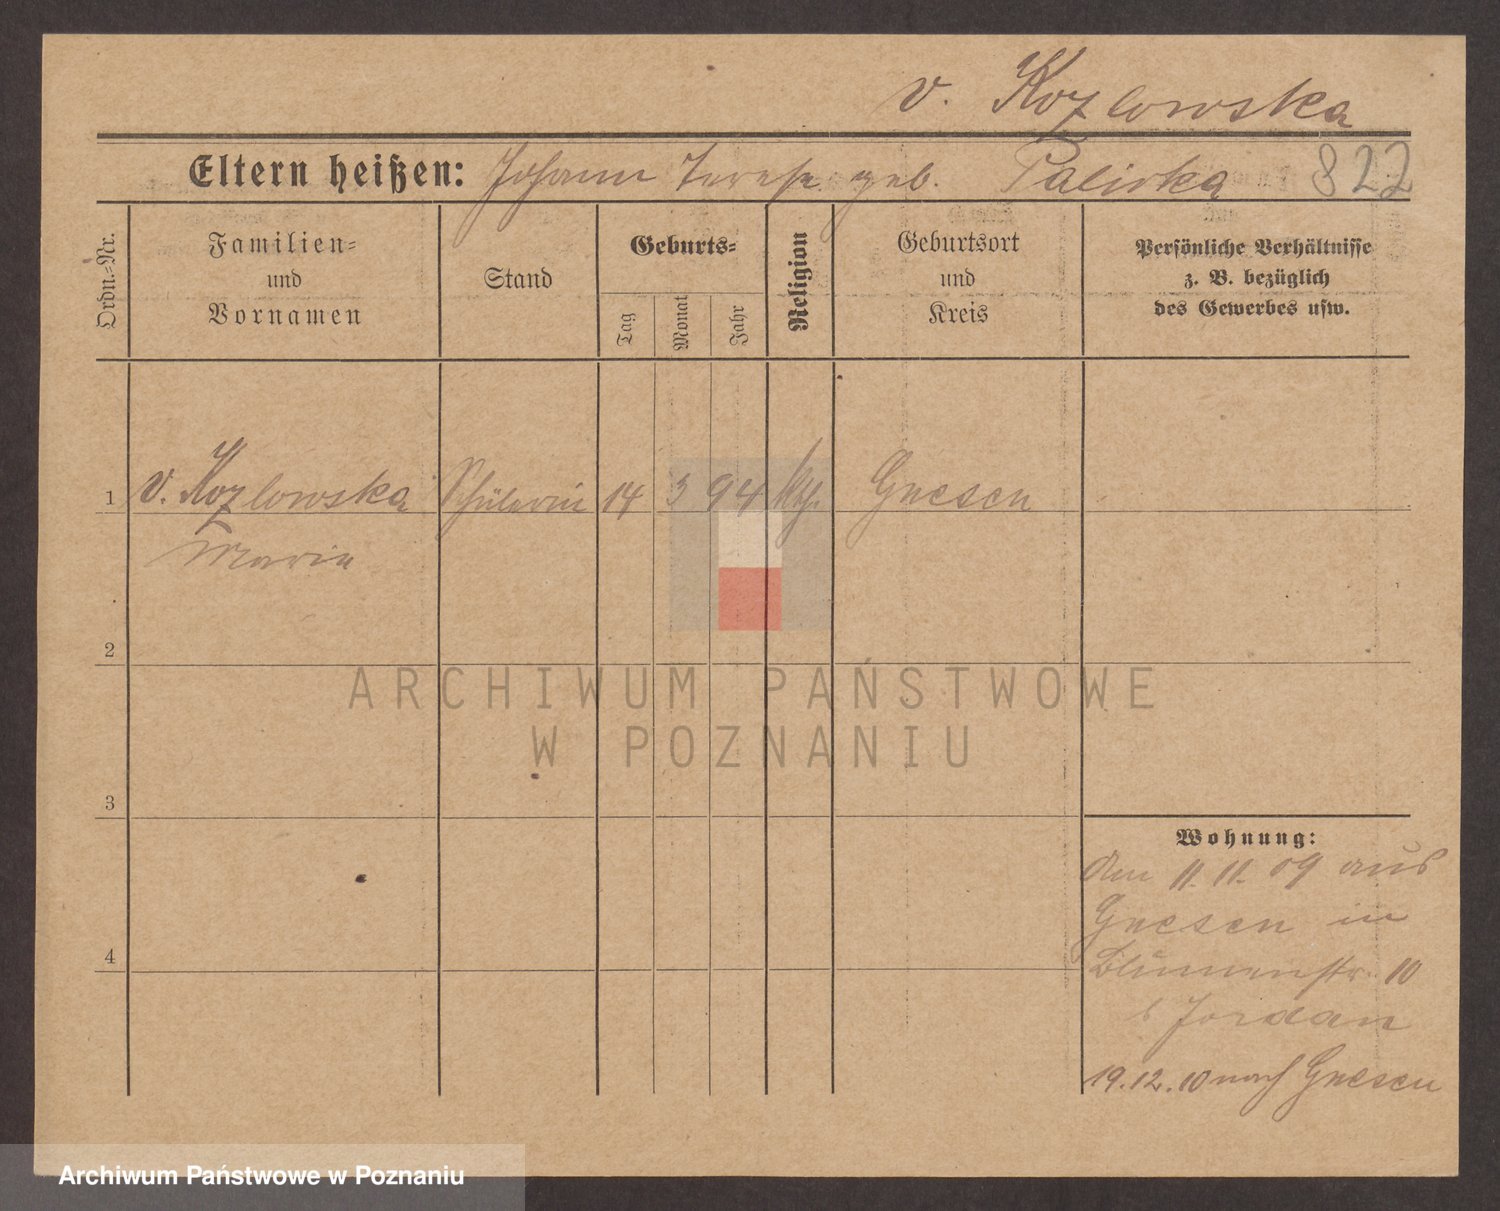 v. Kozlowska
Eltern heißen: Johann Terese geb. Palicka 822
Ordn.-Nr.
Familien-
und
Vornamen
Stand
Geburts-
Tag
Monat
Jahr
Religion
Geburtsort
und
Kreis
Persönliche Verhältnisse
z. B. bezüglich
des Gewerbes usw.
1 v. Kozlowska Schülerin 14 3 94 kth. Gnesen
Maria
2
ARCHIWUM PAŃSTWOWE
W POZNANIU
3
Wohnung:
den 11.11.09 aus
Gnesen in
Blumenstr. 10
b Jordan
4
19.12.10 nach Gnesen
Archiwum Państwowe w Poznaniu